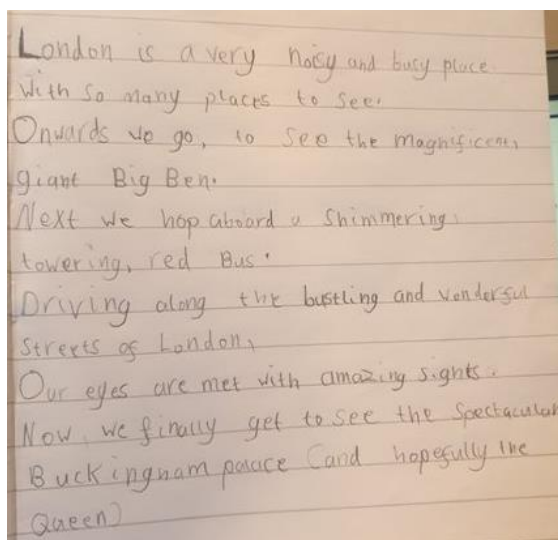 London is a very noisy and busy place
With so many places to see.
Onwards we go, to see the magnificent,
giant Big Ben.
Next we hop aboord a Shimmering,
towering, red Bus.
Driving along the bustling and vonderful
Streets of London,
Our eyes are met with amazing sights.
Now, we finally get to see the Spectacular
Buckingham palace (and hopefully the
Queen)